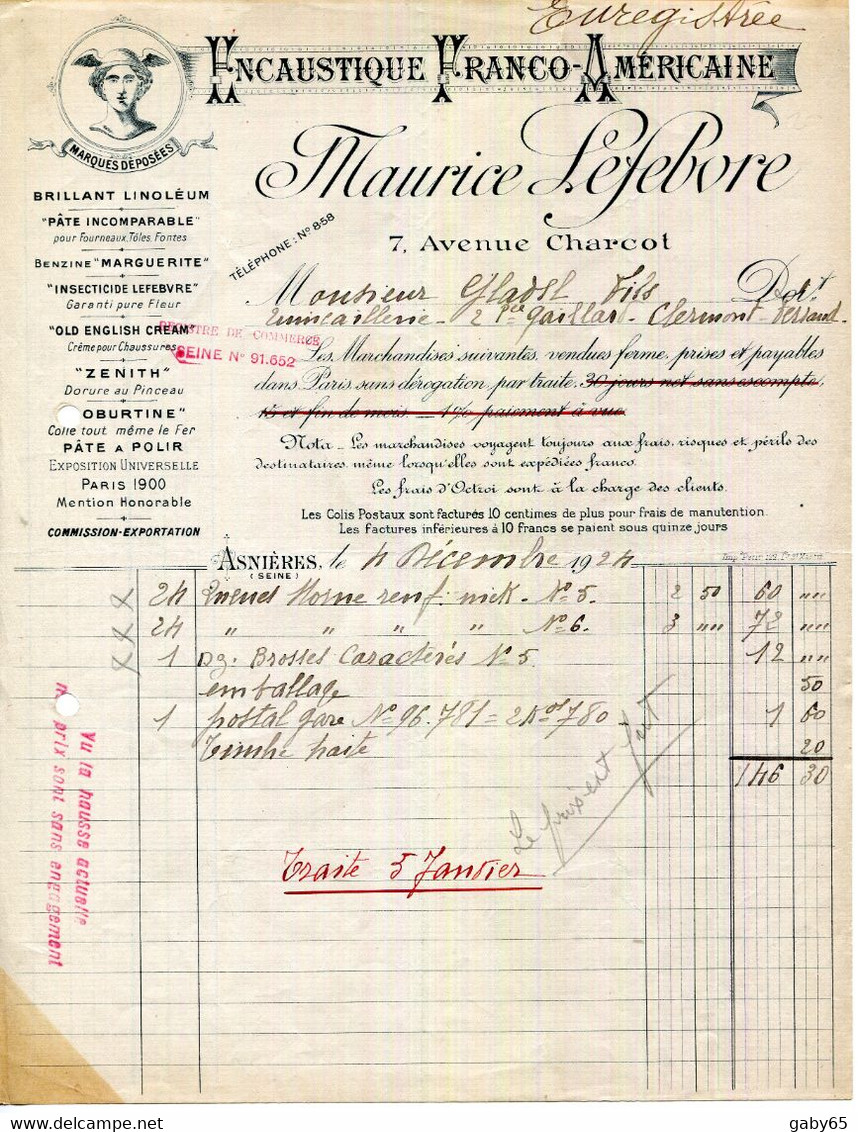 Enregistrée
ENCAUSTIQUE FRANCO-AMÉRICAINE
MARQUES DÉPOSÉES
Maurice Lefebvre
7, Avenue Charcot
TÉLÉPHONE: N° 8-58
BRILLANT LINOLÉUM
"PÂTE INCOMPARABLE"
pour Fourneaux, Tôles, Fontes
BENZINE "MARGUERITE"
"INSECTICIDE LEFEBVRE"
Garanti pure Fleur
"OLD ENGLISH CREAM"
Crème pour Chaussures
"ZENITH"
Dorure au Pinceau
OBURTINE"
Colle tout même le Fer
PÂTE A POLIR
EXPOSITION UNIVERSELLE
PARIS 1900
Mention Honorable
COMMISSION-EXPORTATION
REGISTRE DE COMMERCE
SEINE N° 91.652
Monsieur Fils Doit
2 Pce Gaillard - Clermont-Ferrand
Les Marchandises suivantes, vendues ferme, prises et payables
dans Paris sans dérogation, par traite, 30 jours net sans escompte,
15 et fin de mois. — 1% paiement à vue.
Nota - Les marchandises voyagent toujours aux frais, risques et périls des
destinataires, même lorsqu'elles sont expédiées franco.
Les frais d'Octroi sont à la charge des clients.
Les Colis Postaux sont facturés 10 centimes de plus pour frais de manutention.
Les factures inférieures à 10 francs se paient sous quinze jours
ASNIÈRES, le 4 Décembre 1924
(SEINE)
24 renf. nick. N° 5. 2 50 60 ""
24 " " " " N° 6. 3 "" 72 ""
1 Dz. Brosses Caractères N° 5 12 ""
emballage 50
1 postal gare N° 96.781 = 780 1 60
Timbre traite 20
146 30
Le prix est fait
Traite 5 Janvier
Vu la hausse actuelle
nos prix sont sans engagement
gaby65